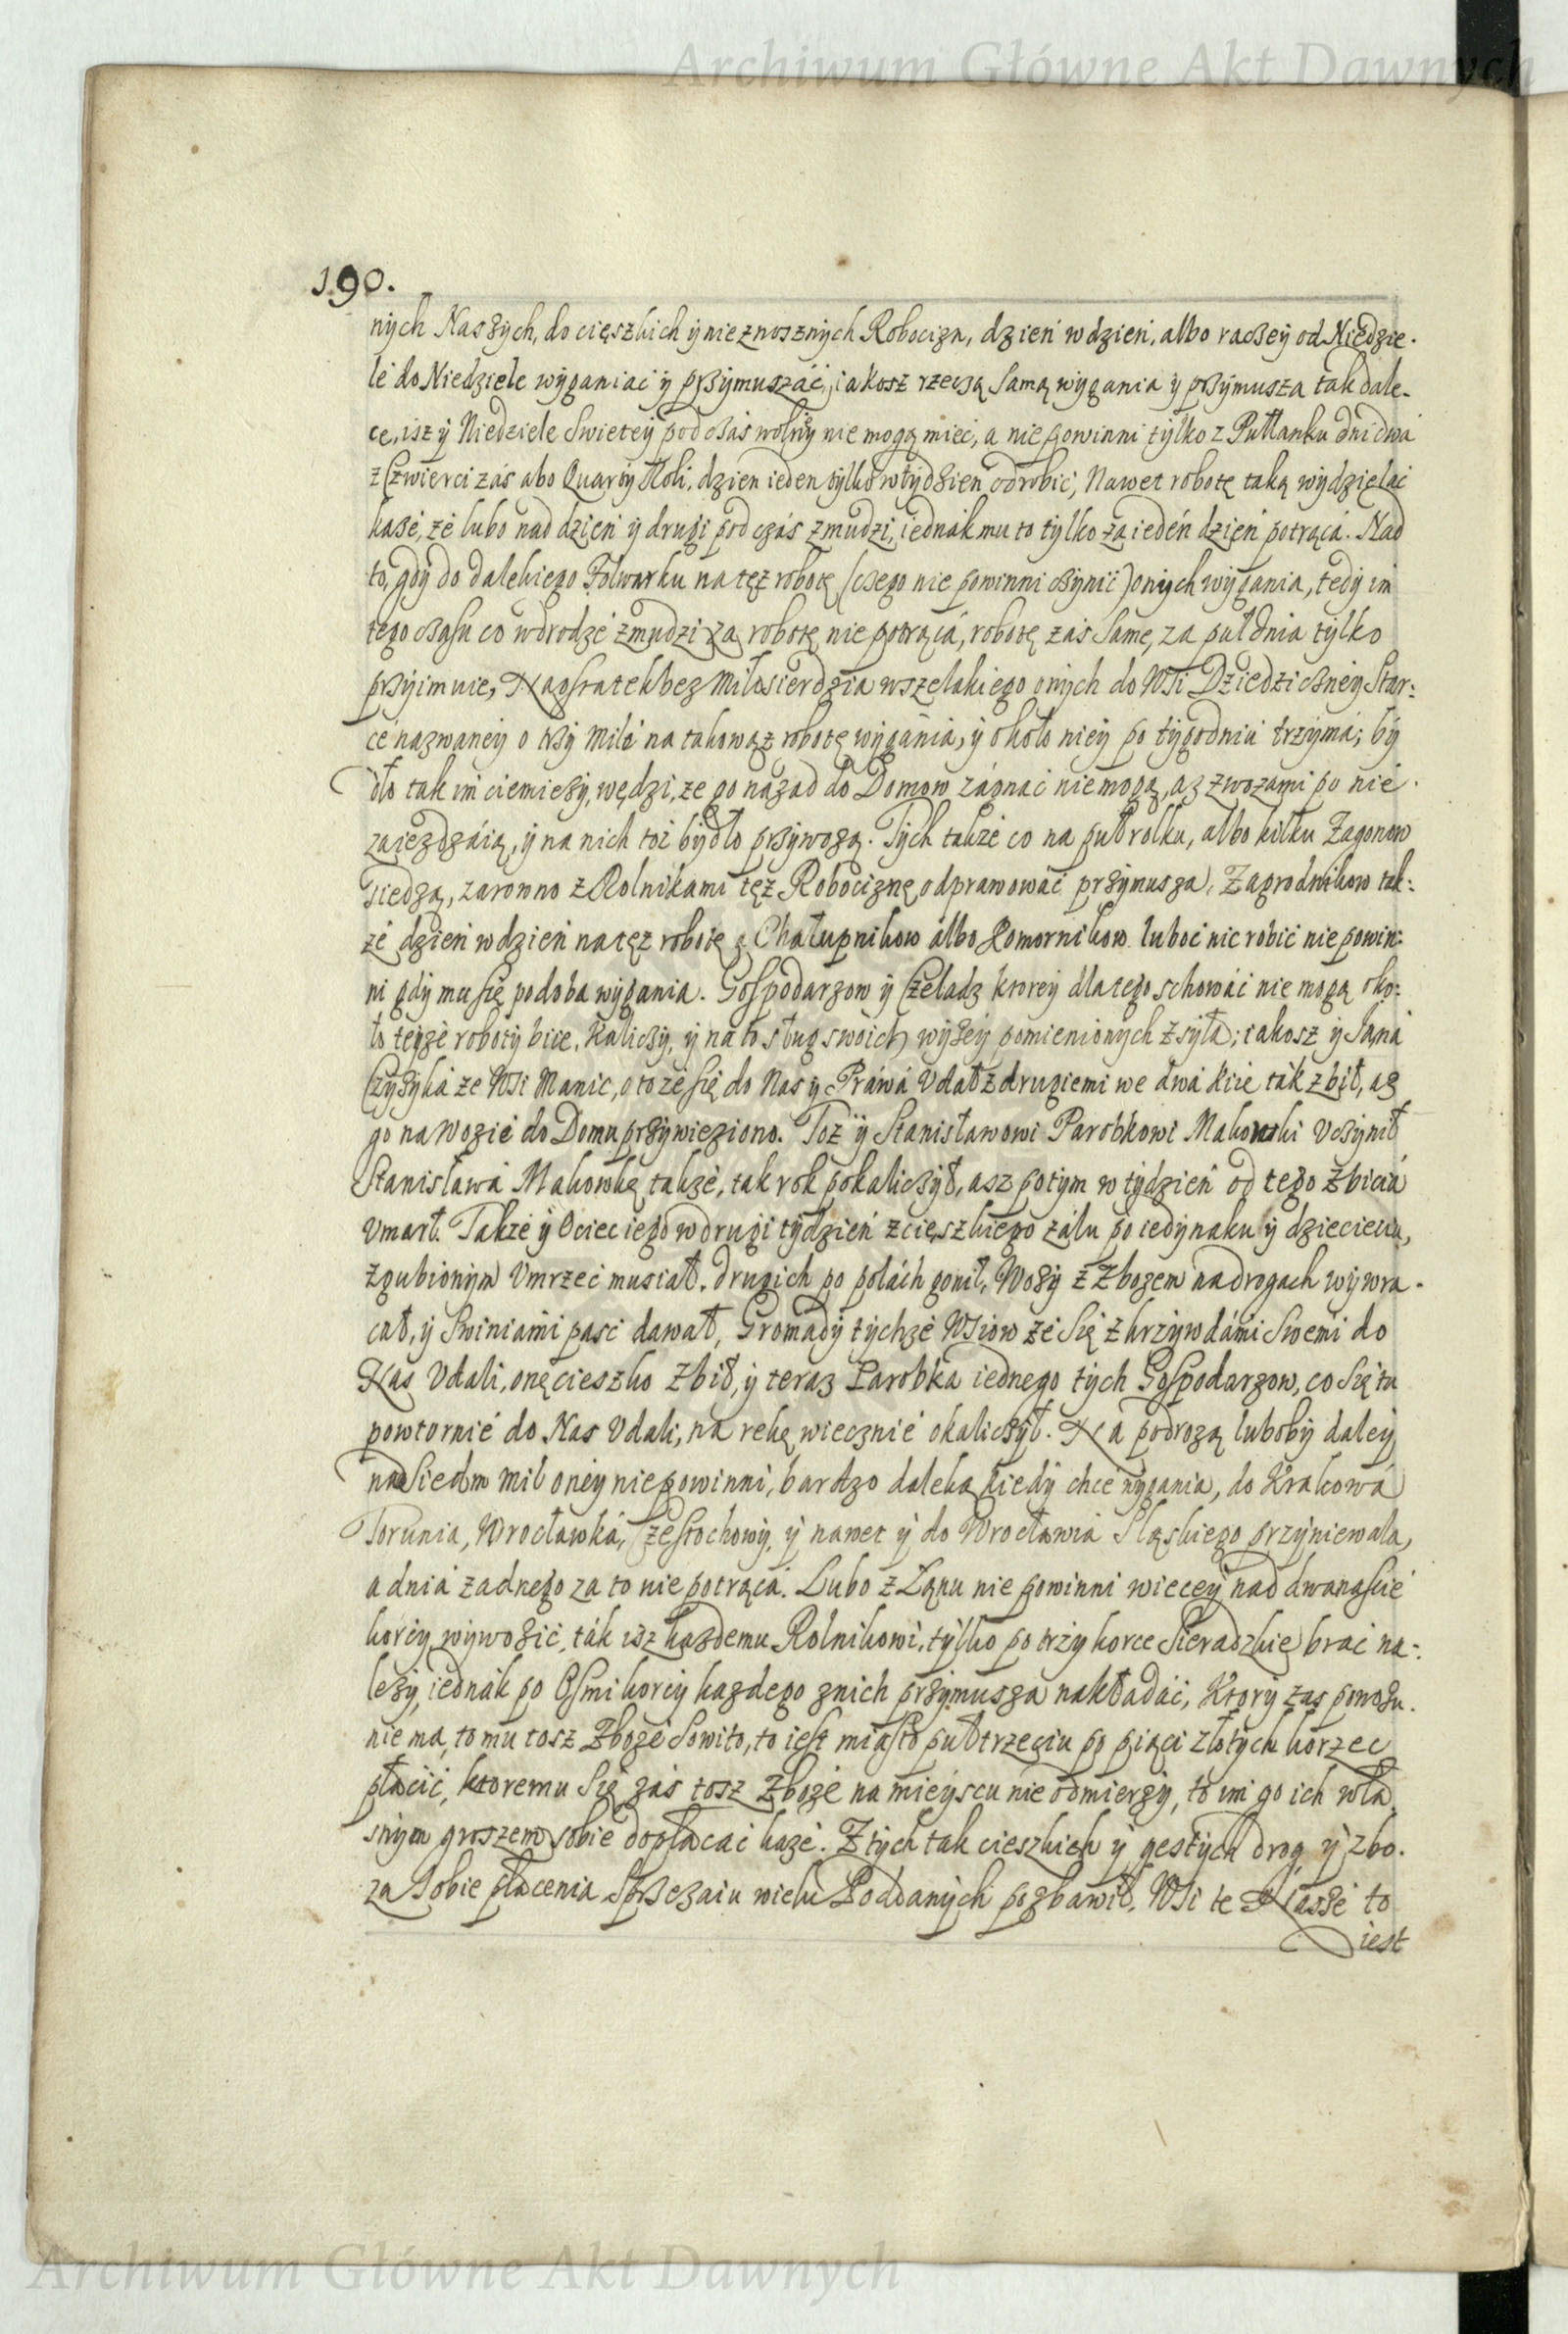 Archiwum Główne Akt Dawnych
190.
nych Naszych, do cięszkich y nieznosznych Robocizn, dzień w dzień, albo raczey od Niedzie-
le do Niedziele wyganiać y przymuszáć, iakosz rzeczą samą wygania y przymusza tak dale-
ce, isz y Niedziele Swietey podczás wolny nie mogą mieć, a nie powinni tylko z Pułłanku dni dwá
z Czwierci zás abo Quarty Roli, dzien ieden tylko w tydzień odrobić, Nawet robotę taką wydzielać
każe, że lubo nad dzień y drugi podczás zmudzi, iednák mu to tylko za iedeń dzień potrąca. Nad
to, gdy do dalekiego Folwarku na tęż robotę (czego nie powinni czynić) onych wygania, tedy im
tego czasu co w drodze zmudzi za robotę nie potrącá, robotę zás samę, za puł dnia tylko
przyimuie, Naostatek bez Miłosierdzia wszelakiego onych do Wsi Dziedziczney Star-
ce nazwaney o trzy Mile na takowąż robotę wygánia, y około niey po tygodniu trzyma; by
dło tak im ciemięży, wędzi, że go názad do Domow zágnać nie mogą, aż z wozami po nie
zaieżdzáią, y na nich toż bydło przywożą. Tych także co na puł rolku, albo kilku Zagonow
siedzą, zarowno z Rolnikami tęż Robociznę odprawować przymusza, Zagrodnikow tak-
że dzień w dzień na tęż robotę, Chałupnikow álbo Komornikow luboć nic robić nie powin-
ni gdy mu się podoba wygania. Gospodarzow y Czeladz ktorey dlatego schowáć nie mogą oko-
ło teyże roboty biie, kaliczy, y na to sług swoich wyżey pomienionych zsyła; iakosz y Jana
Czyżyka ze Wsi Manic, o to że się do Nas y Práwá udał z drugiemi we dwá kiie ták zbił, aż
go na Wozie do Domu przywieziono. Toż y Stanisławowi Parobkowi Makowski uczynił
Stanisławá Makowkę także, tak rok pokaliczył, asz potym w tydzień od tego zbicia
umarł. Także y Ociec iego w drugi tydzień z cięszkiego żálu po iedynaku y dziecieciu,
zgubionym umrzeć musiał, drugich po polách gonił, Wozy z Zbożem na drogach wywra-
cał, y Swiniami paść dawał, Gromady tychże Wsiow że się z krzywdámi swemi do
Nas udali, onę cieszko zbił, y teraz Parobka iednego tych Gospodarzow, co się tu
powtornie do Nas udali, na rękę wiecznie okaliczył. Na podrożą luboby daley
nad Siedm mil oney nie powinni, bardzo daleką kiedy chce wygania, do Krakowá
Torunia, Wrocławká, Czestochowy, y nawet y do Wrocławiá Sląskiego przyniewala,
a dniá żadnego za to nie potrąca. Lubo z Łanu nie powinni wiecey nad dwanaście
korcy wywozić, ták isz każdemu Rolnikowi, tylko po trzy korce Sieradzkie brać na-
leży, iednák po Ośmi korcy kazdego z nich przymusza nakładáć, Ktory zaś powozu
nie má, to mu tosz Zboże sowito, to iest miasto pułtrzeciu po piąci złotych korzec
płacić, ktoremu się zás tosz Zboże na mieyscu nie odmierzy, to im go ich wła
snym groszem sobie dopłacać każe. Z tych tak cieszkich y gestych drog y zbo-
ża sobie płacenia sprzężaiu wielu Poddanych pozbawił, Wsi te Nasze to
iest
Archiwum Główne Akt Dawnych